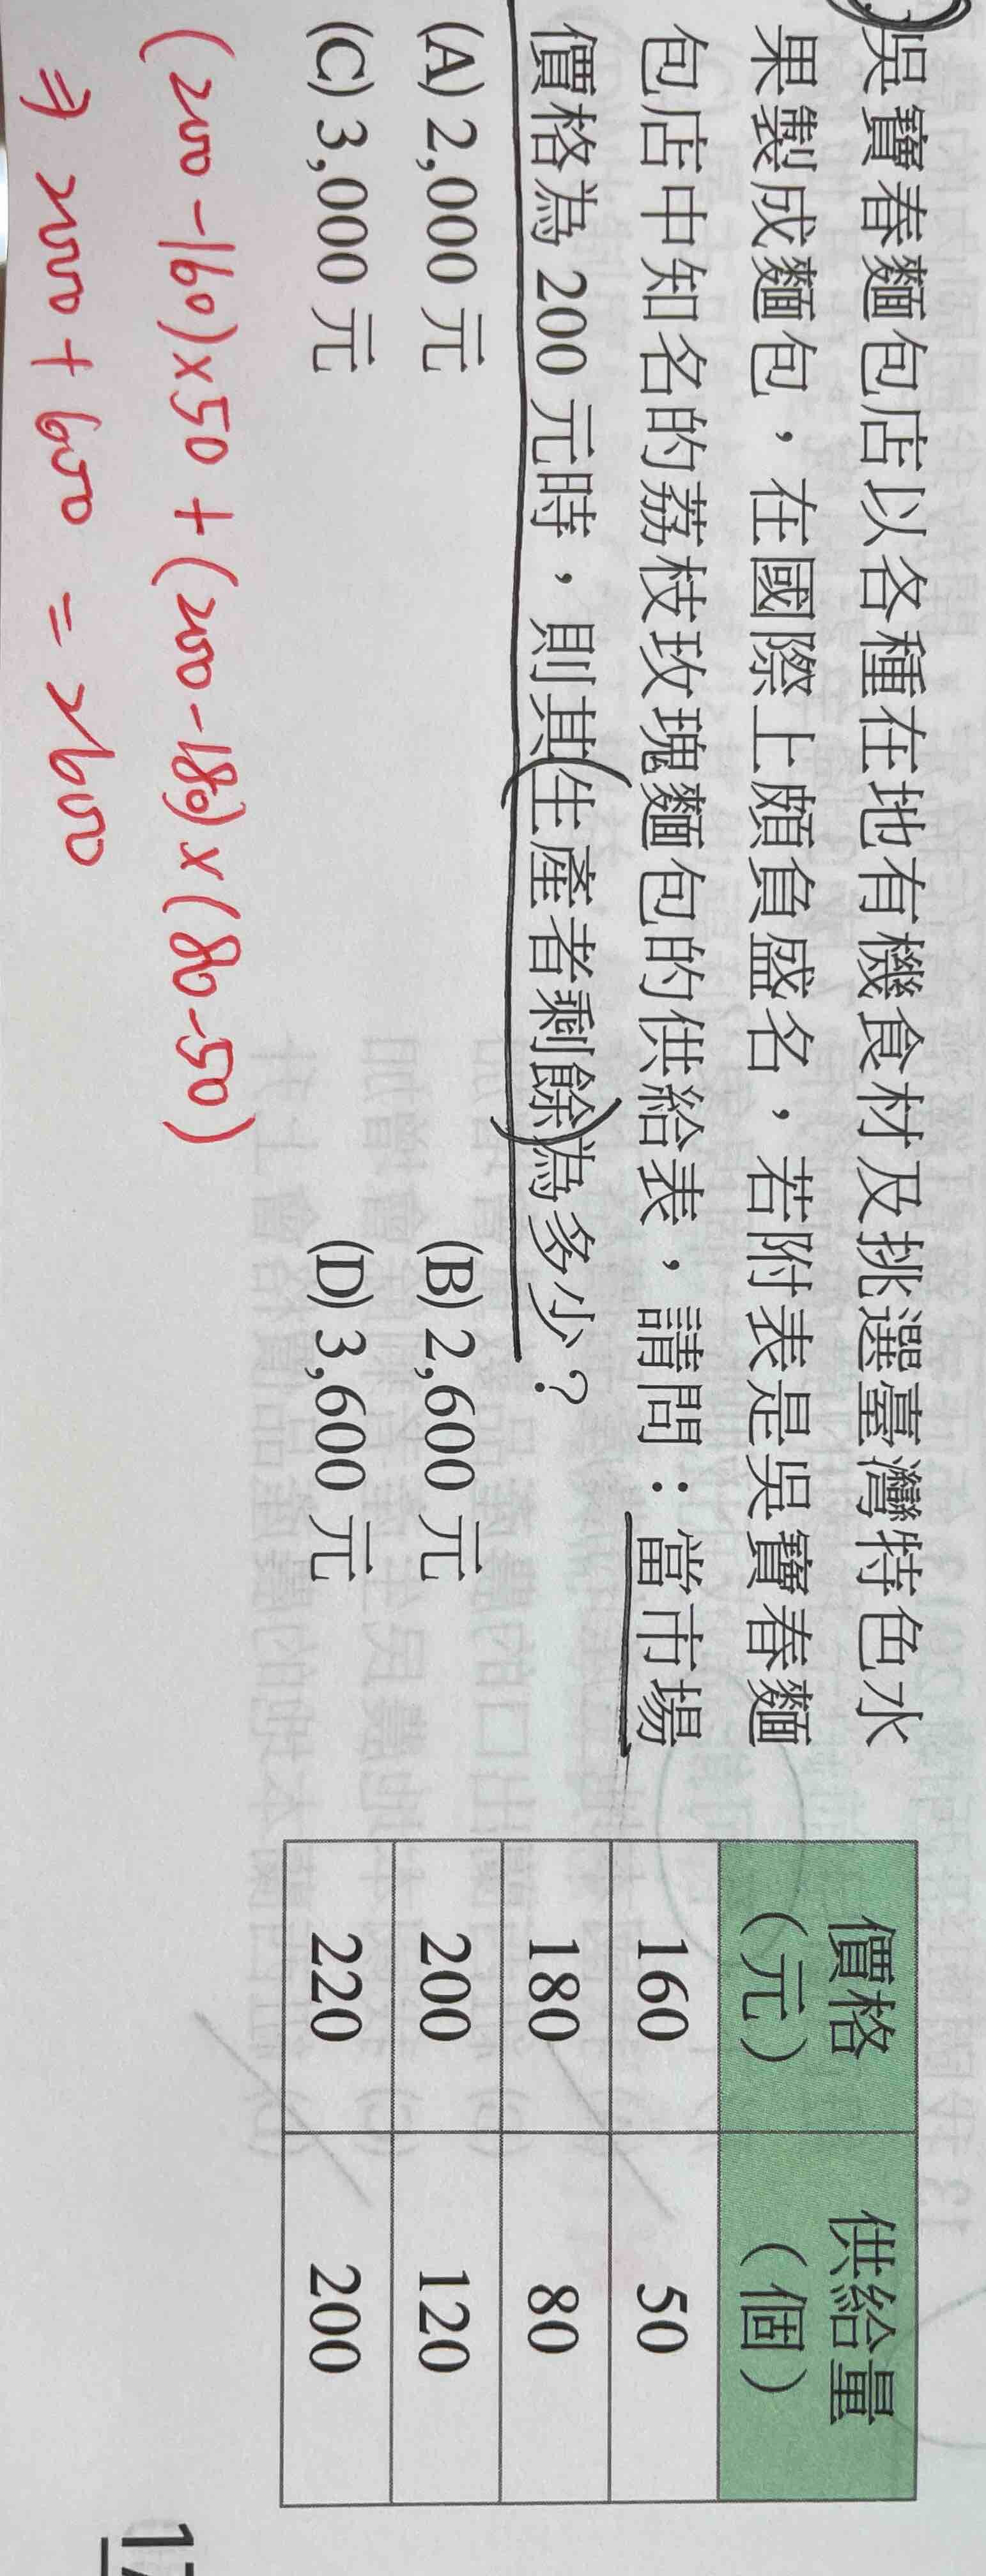 吳寶春麵包店以各種在地有機食材及挑選臺灣特色水
果製成麵包，在國際上頗負盛名，若附表是吳寶春麵
包店中知名的荔枝玫瑰麵包的供給表，請問：當市場
價格為 200 元時，則其生產者剩餘為多少？
(A) 2,000 元 (B) 2,600 元
(C) 3,000 元 (D) 3,600 元
(200-160)×50+(200-180)×(80-50)
⇒ 2000+600=2600
價格（元） 供給量（個）
160 50
180 80
200 120
220 200